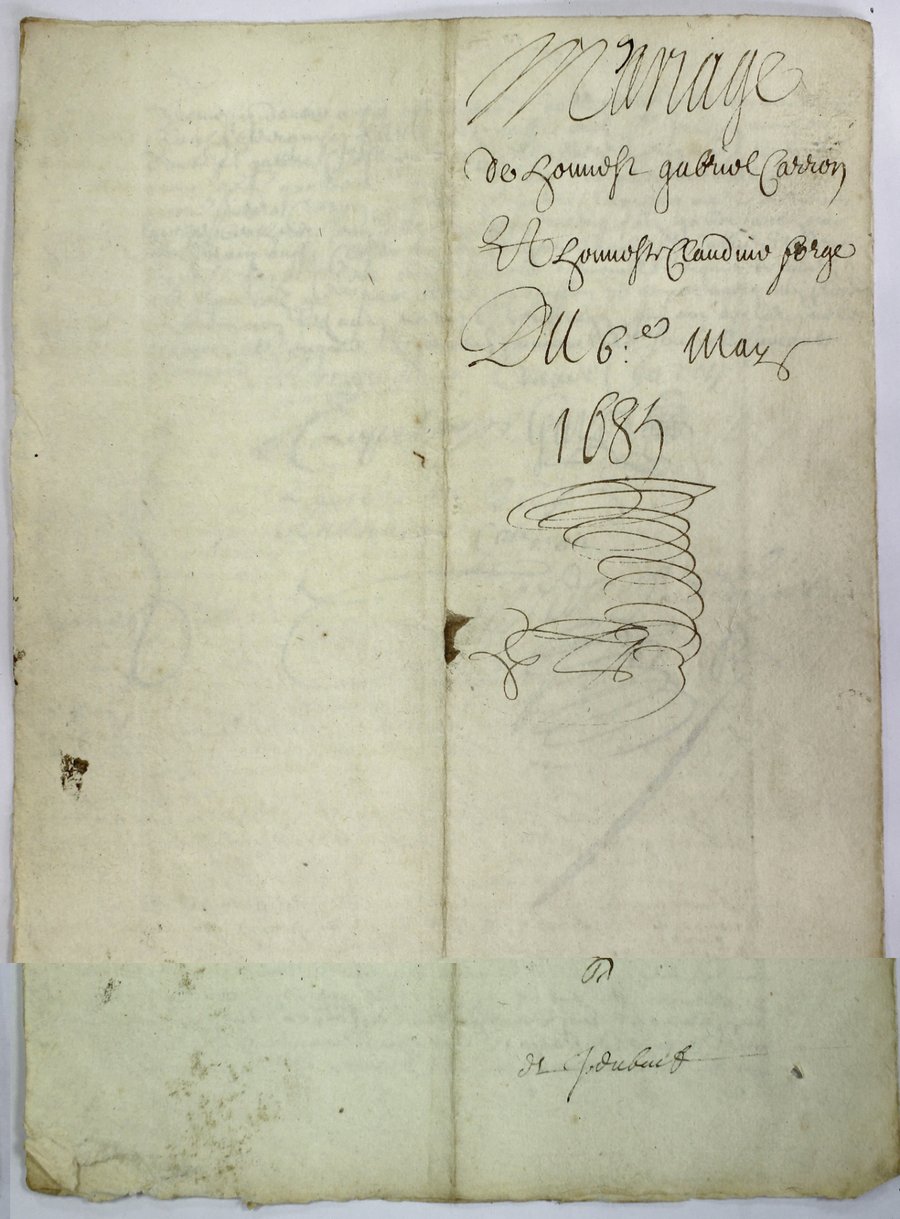 Mariage
de honnest gabriel Carron
Et honneste Claudine forge
Du 6.e Mars
1685
de